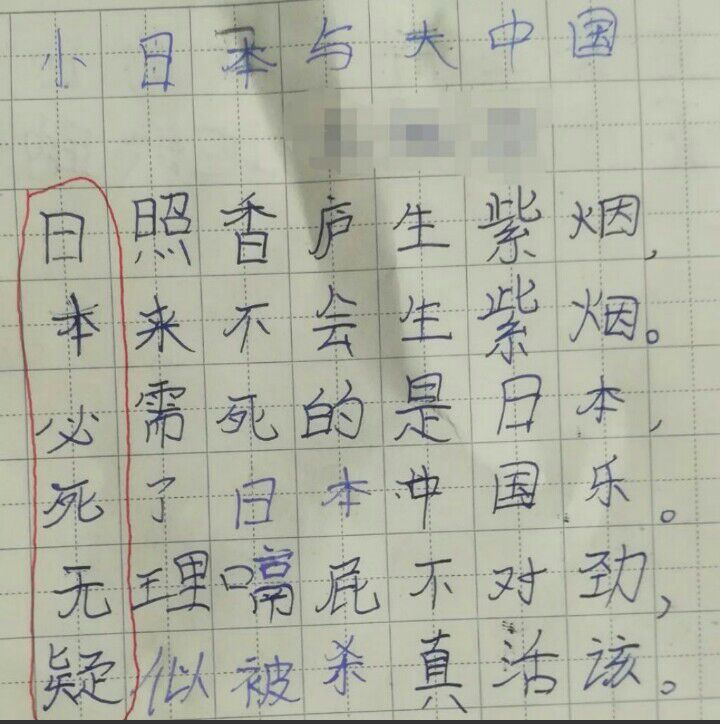 小日本与大中国
日照香庐生紫烟,
本来不会生紫烟。
必需死的是日本,
死了日本中国乐。
无理嗝屁不对劲,
疑似被杀真活该。